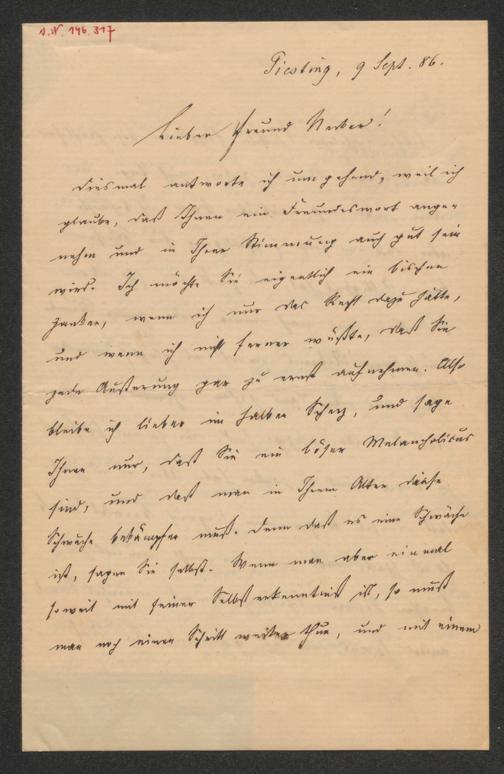 I.N. 146.317
Piesting, 9 Sept. 86.
Lieber Freund Necker!
Diesmal antworte ich umgehend, weil ich
glaube, daß Ihnen ein Freundeswort ange-
nehm und in Ihrer Stimmung auch gut sein
wird. Ich möchte Sie eigentlich ein bischen
zanken, wenn ich nur das Recht dazu hätte,
und wenn ich nicht ferner wüßte, daß Sie
jede Äußerung gar zu ernst aufnehmen. Also
bleibe ich lieber im halben Scherz, und sage
Ihnen nur, daß Sie ein böser Melancholicus
sind, und daß man in Ihrem Alter diese
Schwäche bekämpfen muß. Denn daß es eine Schwäche
ist, sagen Sie selbst. Wenn man aber einmal
soweit mit seiner Selbsterkenntnis ist, so muß
man noch einen Schritt weiter thun, und mit einem